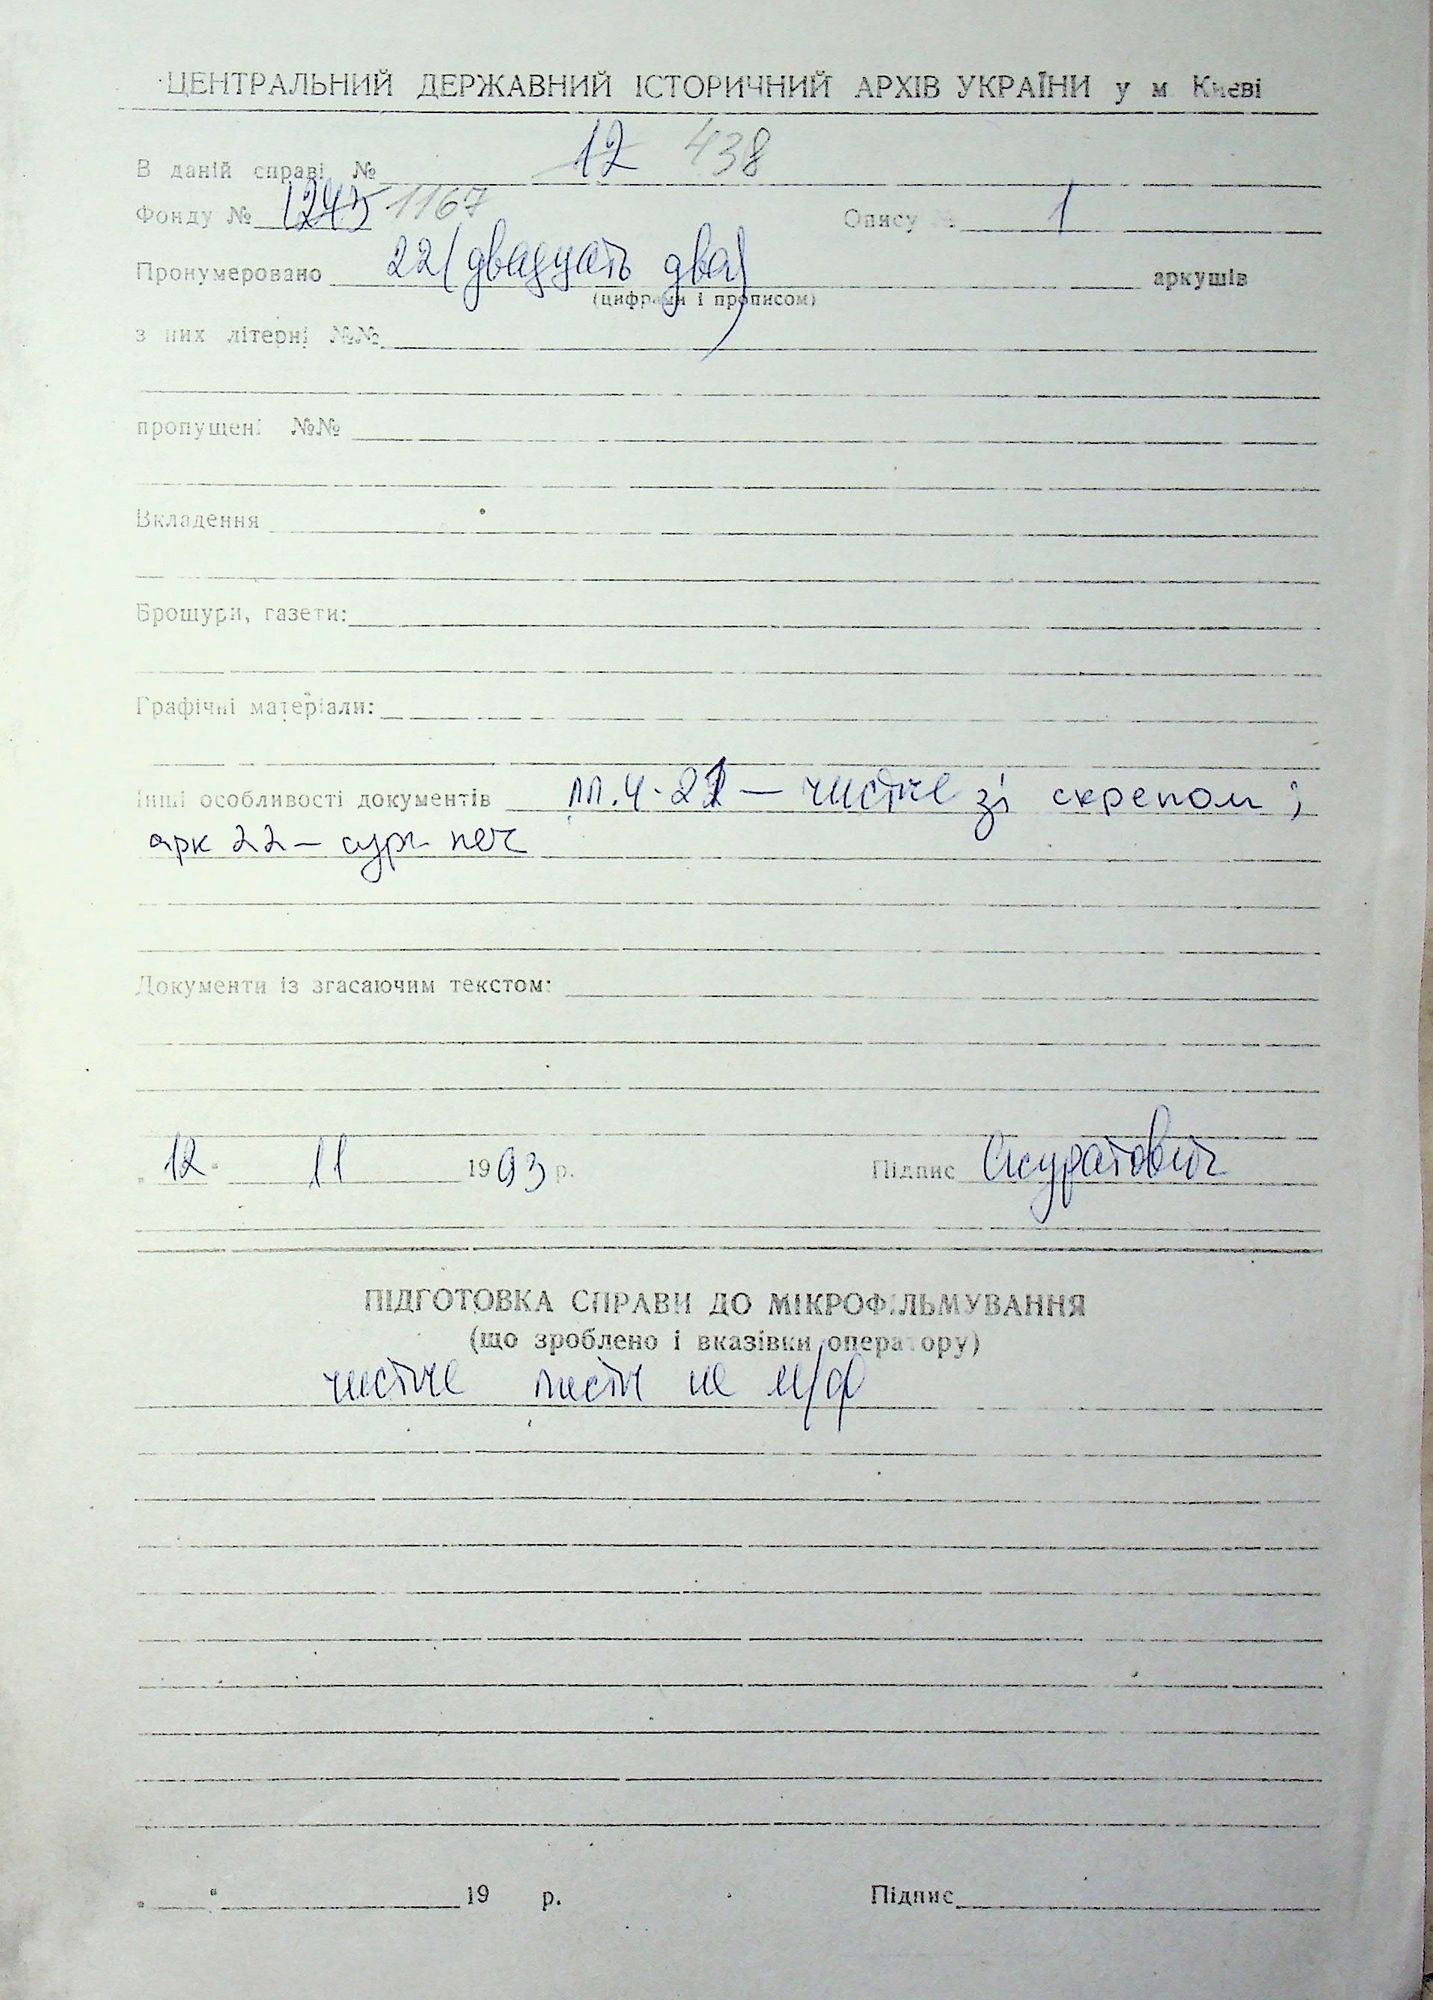 ЦЕНТРАЛЬНИЙ ДЕРЖАВНИЙ ІСТОРИЧНИЙ АРХІВ УКРАЇНИ у м. Києві
В даній справі № 12 438
Фонду № 1245 1167 Опису № 1
Пронумеровано 22 (двадцать два) аркушів
(цифрами і прописом)
з них літерні №№
пропущені №№
Вкладення
Брошури, газети:
Графічні матеріали:
Інші особливості документів лл. 4-21 — чисті зі скрепом;
арк 22 — сург печ
Документи із згасаючим текстом:
"12" 11 1993 р. Підпис Скуратович
ПІДГОТОВКА СПРАВИ ДО МІКРОФІЛЬМУВАННЯ
(що зроблено і вказівки оператору)
чистые листы не м/ф
" " 19 р. Підпис